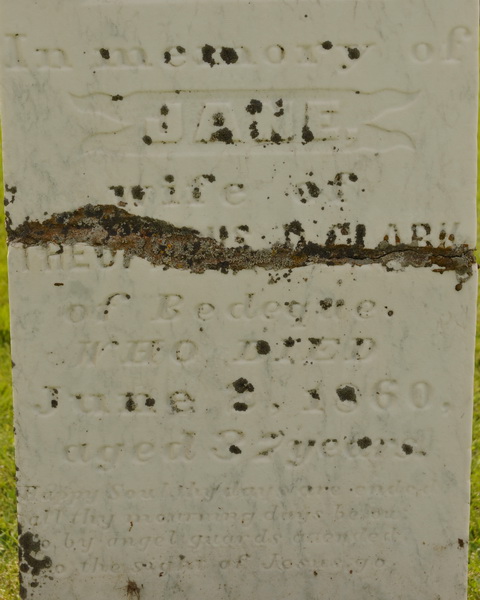 In memory of
JANE.
wife of
CLARK
of Bedeque
WHO DIED
June 2, 1860,
aged 37 years.
Happy Soul thy days are ended
all thy mourning days below
Go by angel guards attended
To the sight of Jesus go.